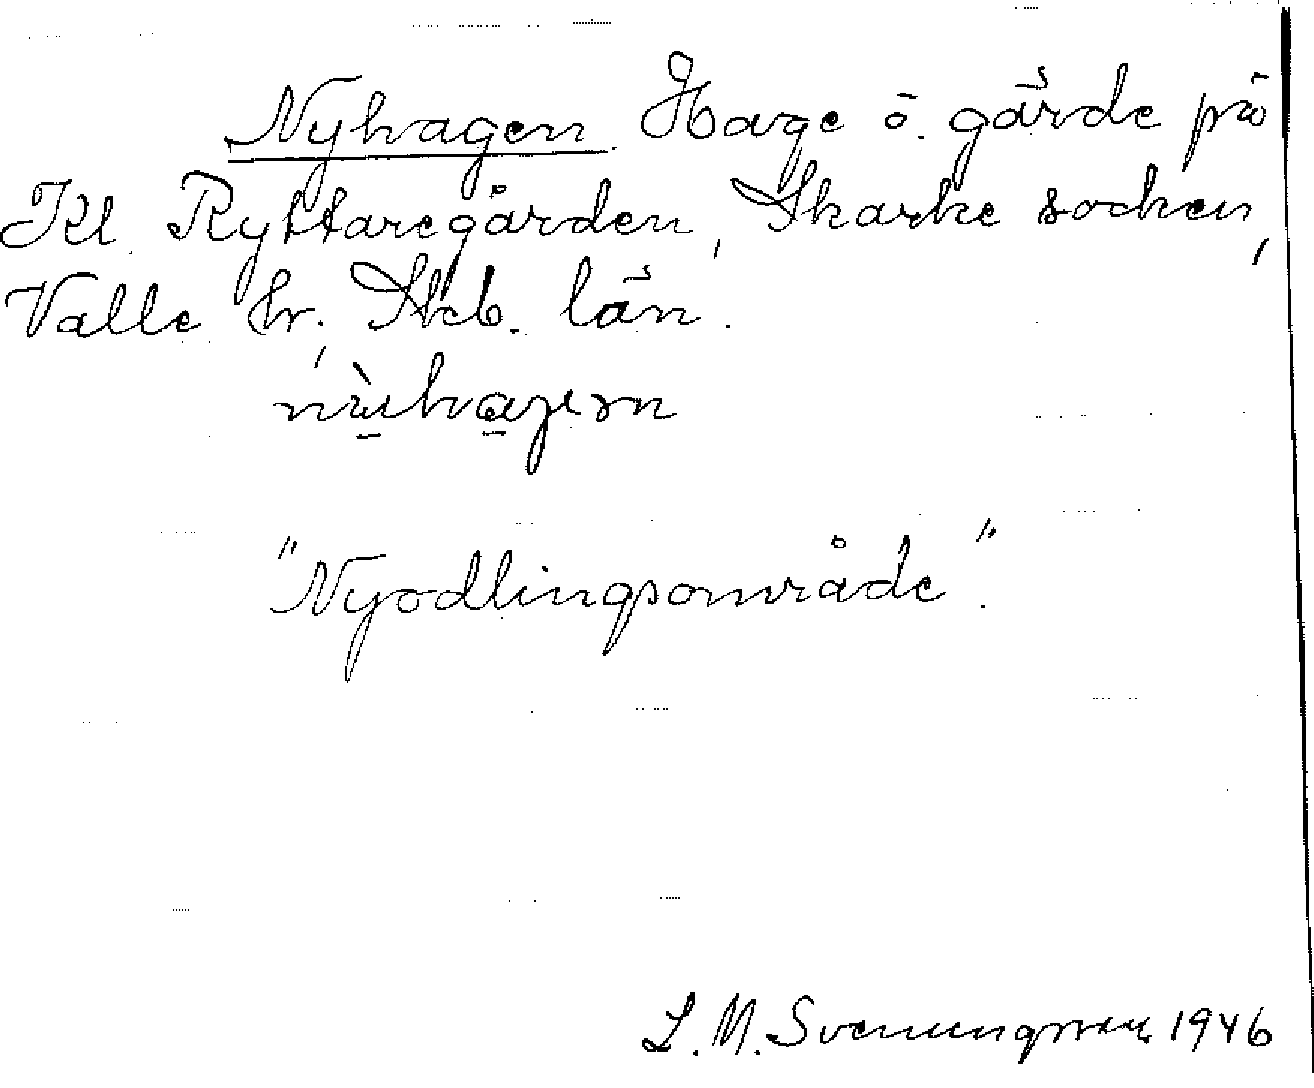 Nyhagen. Hage o. gärde på
Kl. Ryttaregården, Skarke socken,
Valle hr, Skb. län.
"Nyodlingsområde".
L. M. Svenungsson 1946